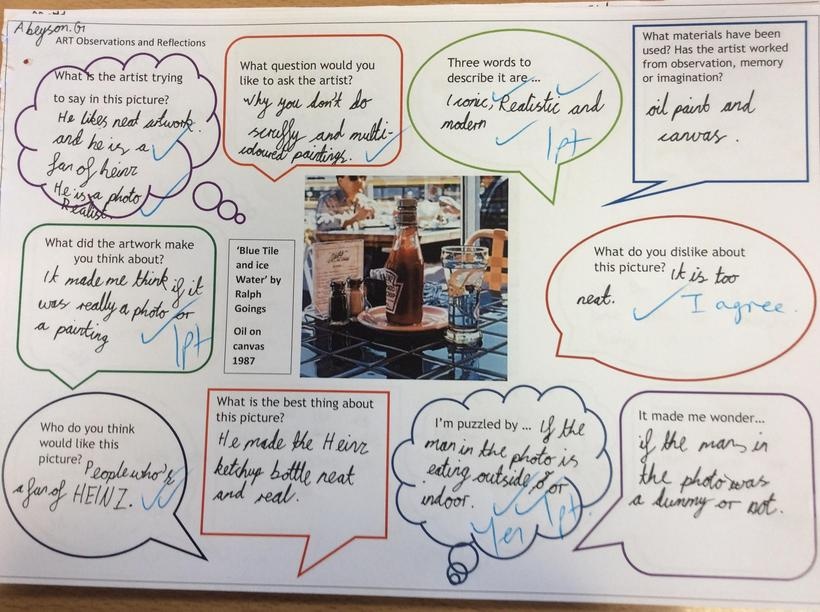 Abeyson.G1
ART Observations and Reflections
What is the artist trying
to say in this picture?
He likes neat artwork.
and he is a
fan of heinz
He is a photo
Realist
What question would you
like to ask the artist?
Why you don't do
scruffy and multi-
coloured paintings.
Three words to
describe it are ...
Iconic, Realistic and
modern
1pt
What materials have been
used? Has the artist worked
from observation, memory
or imagination?
oil paint and
canvas.
What did the artwork make
you think about?
It made me think if it
was really a photo or
a painting
1pt
'Blue Tile
and ice
Water' by
Ralph
Goings
Oil on
canvas
1987
What do you dislike about
this picture? It is too
neat.
I agree.
Who do you think
would like this
picture? People who's
a fan of HEINZ.
What is the best thing about
this picture?
He made the Heinz
ketchup bottle neat
and real.
I'm puzzled by ... If the
man in the photo is
eating outside or
indoor.
Yes 1pt.
It made me wonder...
if the man in
the photo was
a dummy or not.